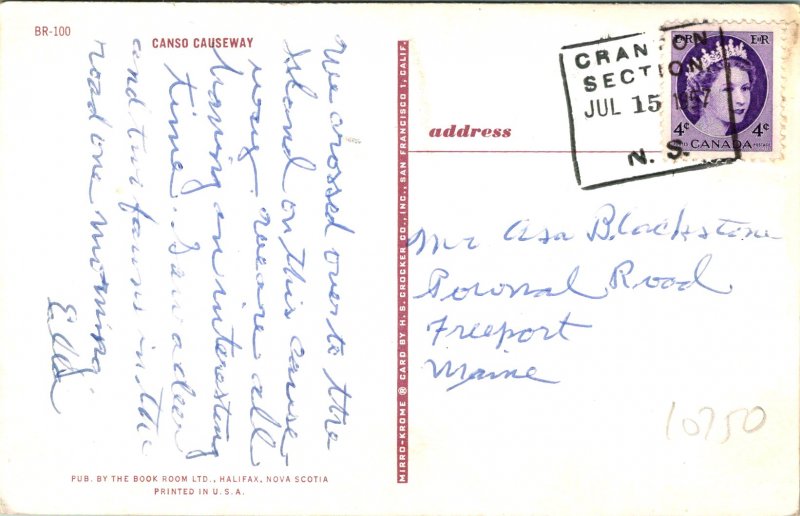 BR-100
CANSO CAUSEWAY
We crossed over to the
Island on this cause-
way. We are all
having an interesting
time. Saw a deer
and two fawns in the
road one morning
Ella
PUB. BY THE BOOK ROOM LTD., HALIFAX, NOVA SCOTIA
PRINTED IN U.S.A.
MIRRO-KROME ® CARD BY H. S. CROCKER CO., INC., SAN FRANCISCO 1, CALIF.
address
CRANTON
SECTION,
JUL 15 1957
N. S.
E II R
4¢ 4¢
CANADA
POSTAGE
Mr Asa Blackstone
Pownal Road
Freeport
Maine
10750